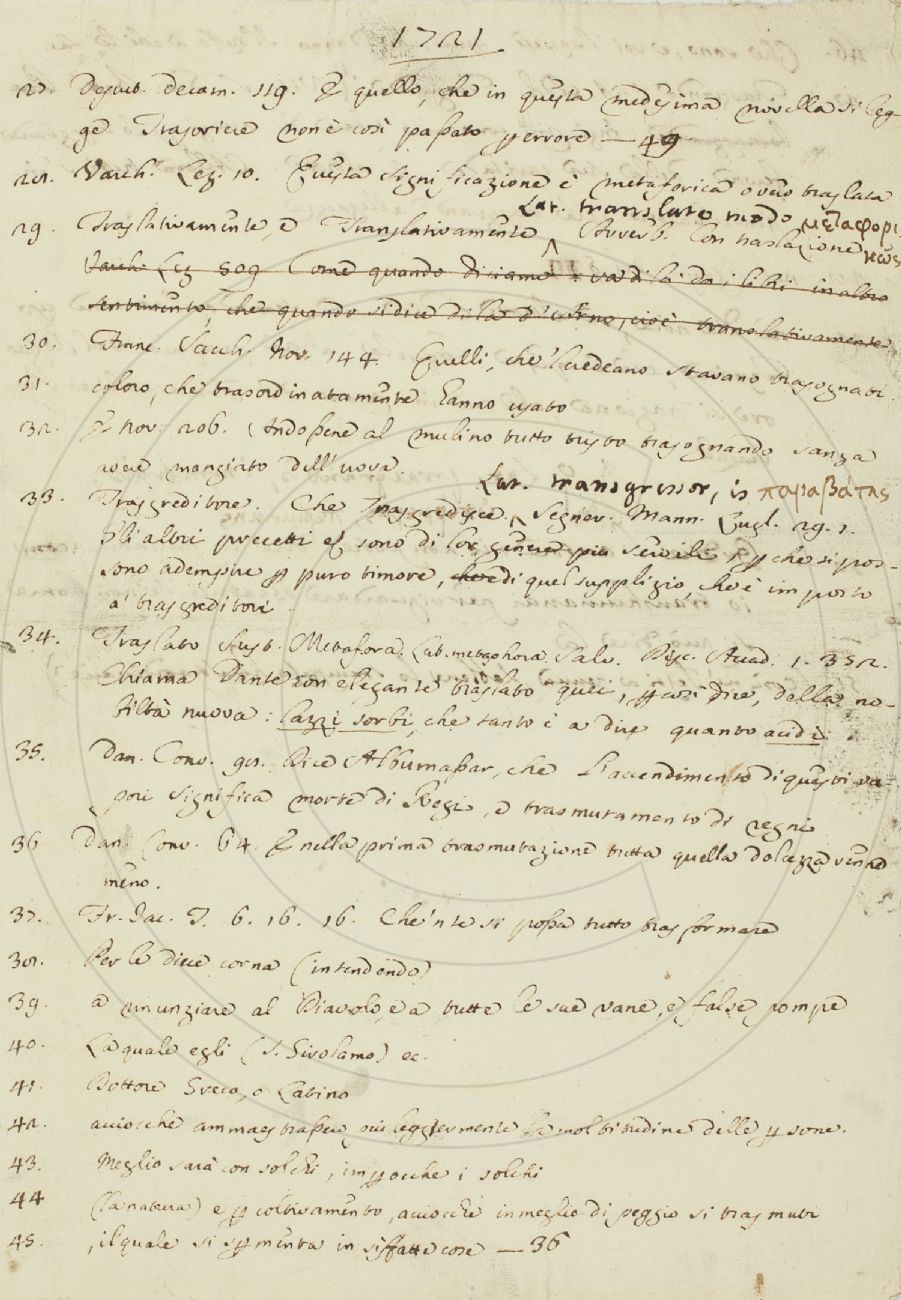 1721
27. Deput. decam. 119. E quello, che in questa medesima novella si leg-
ge Trasoriere non è così passato p errore — 49
28. Varch. Lez. 10. Questa significazione è metaforica ovvero traslata
Lat. translato modo μεταφορι
29. Traslativamente, e Translativamente, Avverb. Con traslazione κῶς
Varch. Lez. 509 Come quando diciamo: va di là da i libri in altro
sentimento, che quando si dice di là d'Arno, cioè translativamente
30. Franc. Sacch. Nov. 144. Quelli, che 'l vedeano stavano trasognati.
31. coloro, che trasordinatamente hanno usato
32. E Nov. 206. Andossene al mulino tutto tristo trasognando sanza
avere mangiato dell'uova.
Lat. transgressor, is παραβάτης
33. Trasgreditore. Che Trasgredisce. Segner. Mann. Lugl. 29. 1.
Gli altri precetti sono di lor genere più servili, p che si pos-
sono adempire p puro timore, di quel supplizio, che è imposto
a' trasgreditori.
34. Traslato Sust. Metafora. Lat. metaphora. Salv. Disc. Accad. 1. 352.
Chiama Dante con elegante traslato quei, p così dire, della no-
biltà nuova: lazzi sorbi, che tanto è a dire quanto acidi
35. Dan. Conv. 98. Dice Albumassar, che l'accendimento di questi va-
pori significa morte di Regi, e trasmutamento di regni
36 Dan. Conv. 64. E nella prima trasmutazione tutta quella dolcezza venne
meno.
37. Fr. Jac. T. 6. 16. 16. Che 'n te si possa tutto trasformare
38. Per le diece corna (intendendo)
39. a rinunziare al Diavolo, e a tutte le sue vane, e false pompe
40. La quale egli (S. Girolamo) ec.
41. Dottore Greco, o Latino
42. acciocchè ammaestrasse più leggiermente la moltitudine delle p sone.
43. Meglio sarà con solchi, imp ocche i solchi
44 (la natura) e p coltivamento, acciocchè in meglio di peggio si trasmuti
45. , il quale si sp menta in siffatte cose — 36